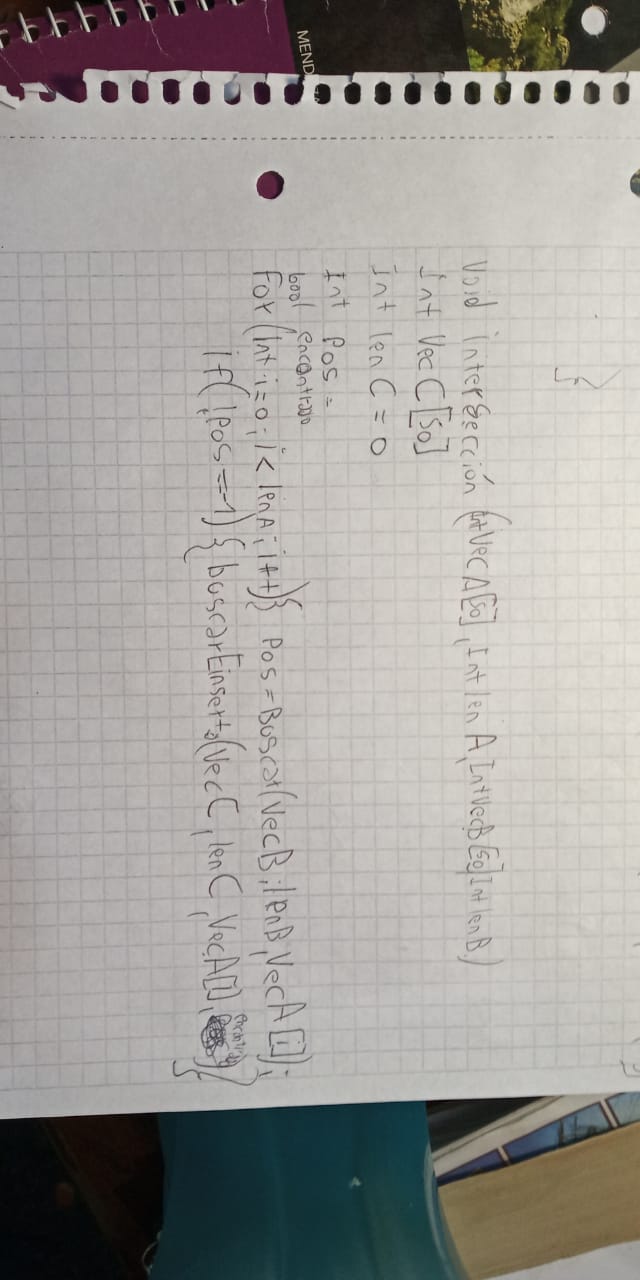 MEND
}
Void intersección (int VecA[50], Int len A, Int VecB[50] Int lenB)
int Vec C [50]
int len C = 0
Int Pos =
bool encontrado
For (Int i=0; i < lenA; i++) { Pos = Buscar(VecB, lenB, VecA [i]);
if( !Pos == -1) { buscarEinserta(VecC, lenC, VecA[i], encontrado)
}